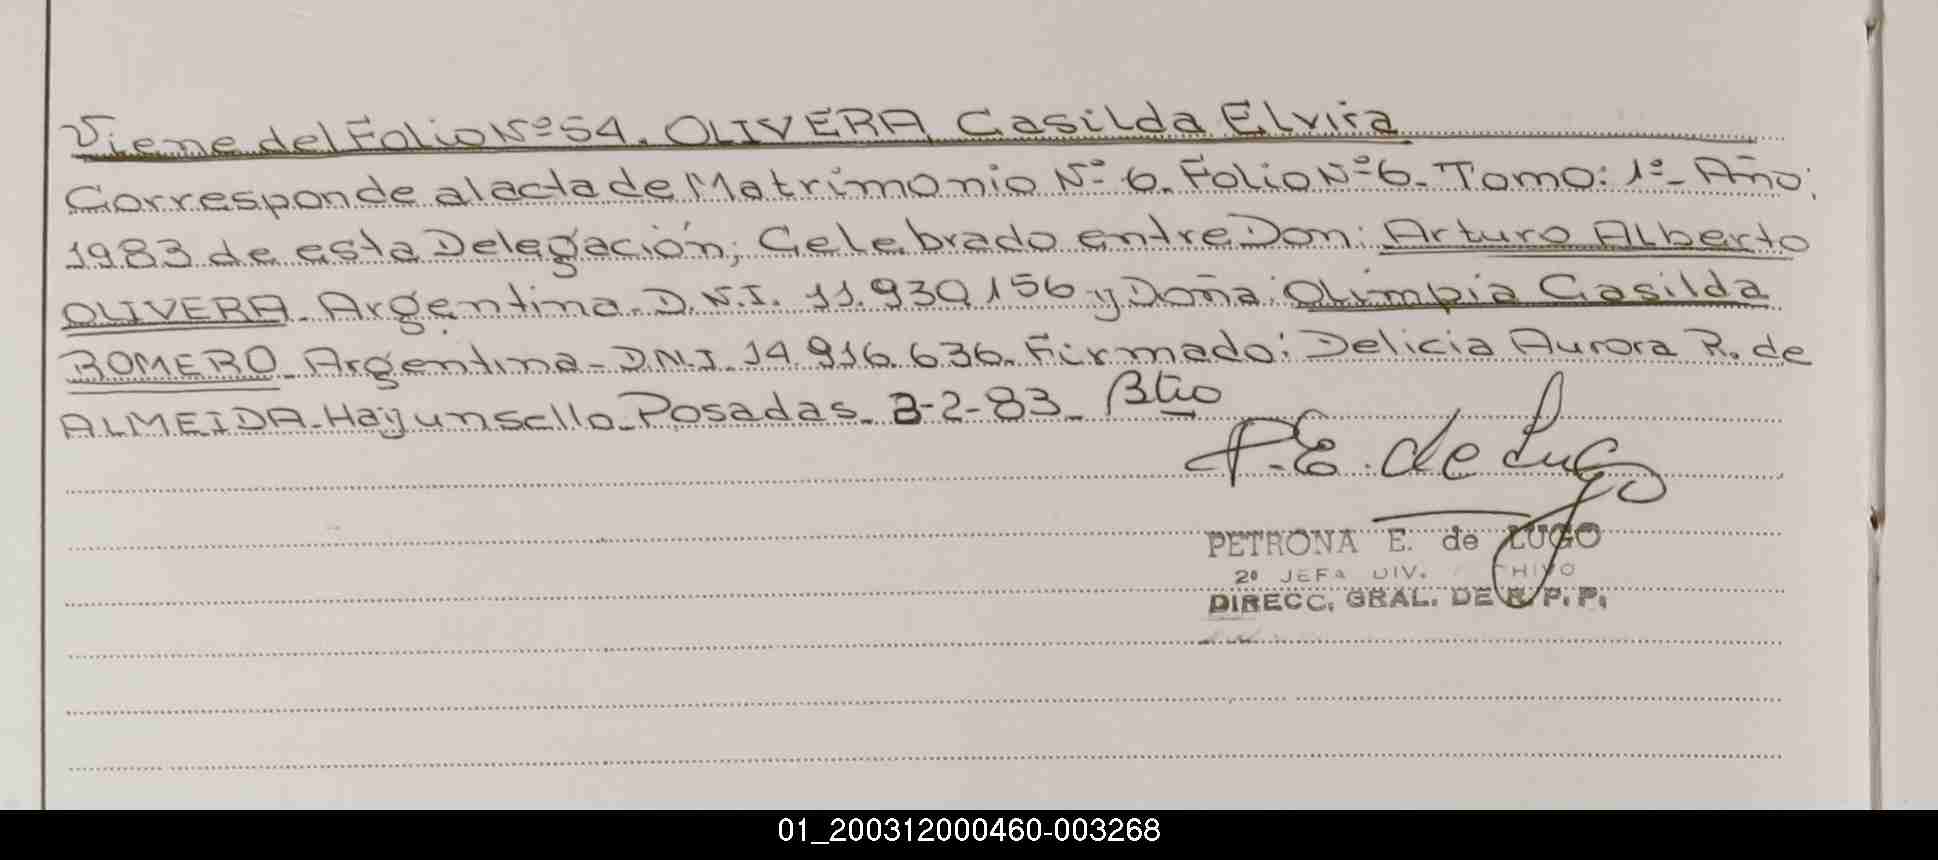 Viene del Folio Nº 54. OLIVERA, Casilda Elvira
Corresponde al acta de Matrimonio Nº 6. Folio Nº 6. Tomo: 1º- Año:
1983 de esta Delegación; Celebrado entre Don: Arturo Alberto
OLIVERA. Argentina. D.N.I. 11.930156 y Doña: Olimpia Casilda
ROMERO. Argentina - D.N.I. 14.916.636. Firmado: Delicia Aurora R. de
ALMEIDA. Hay un sello. Posadas. 3-2-83. Btio
P. E. de Lugo
PETRONA E. de LUGO
2º JEFA DIV. CHIVO
DIRECC. GRAL. DE R. P. P.
01_200312000460-003268